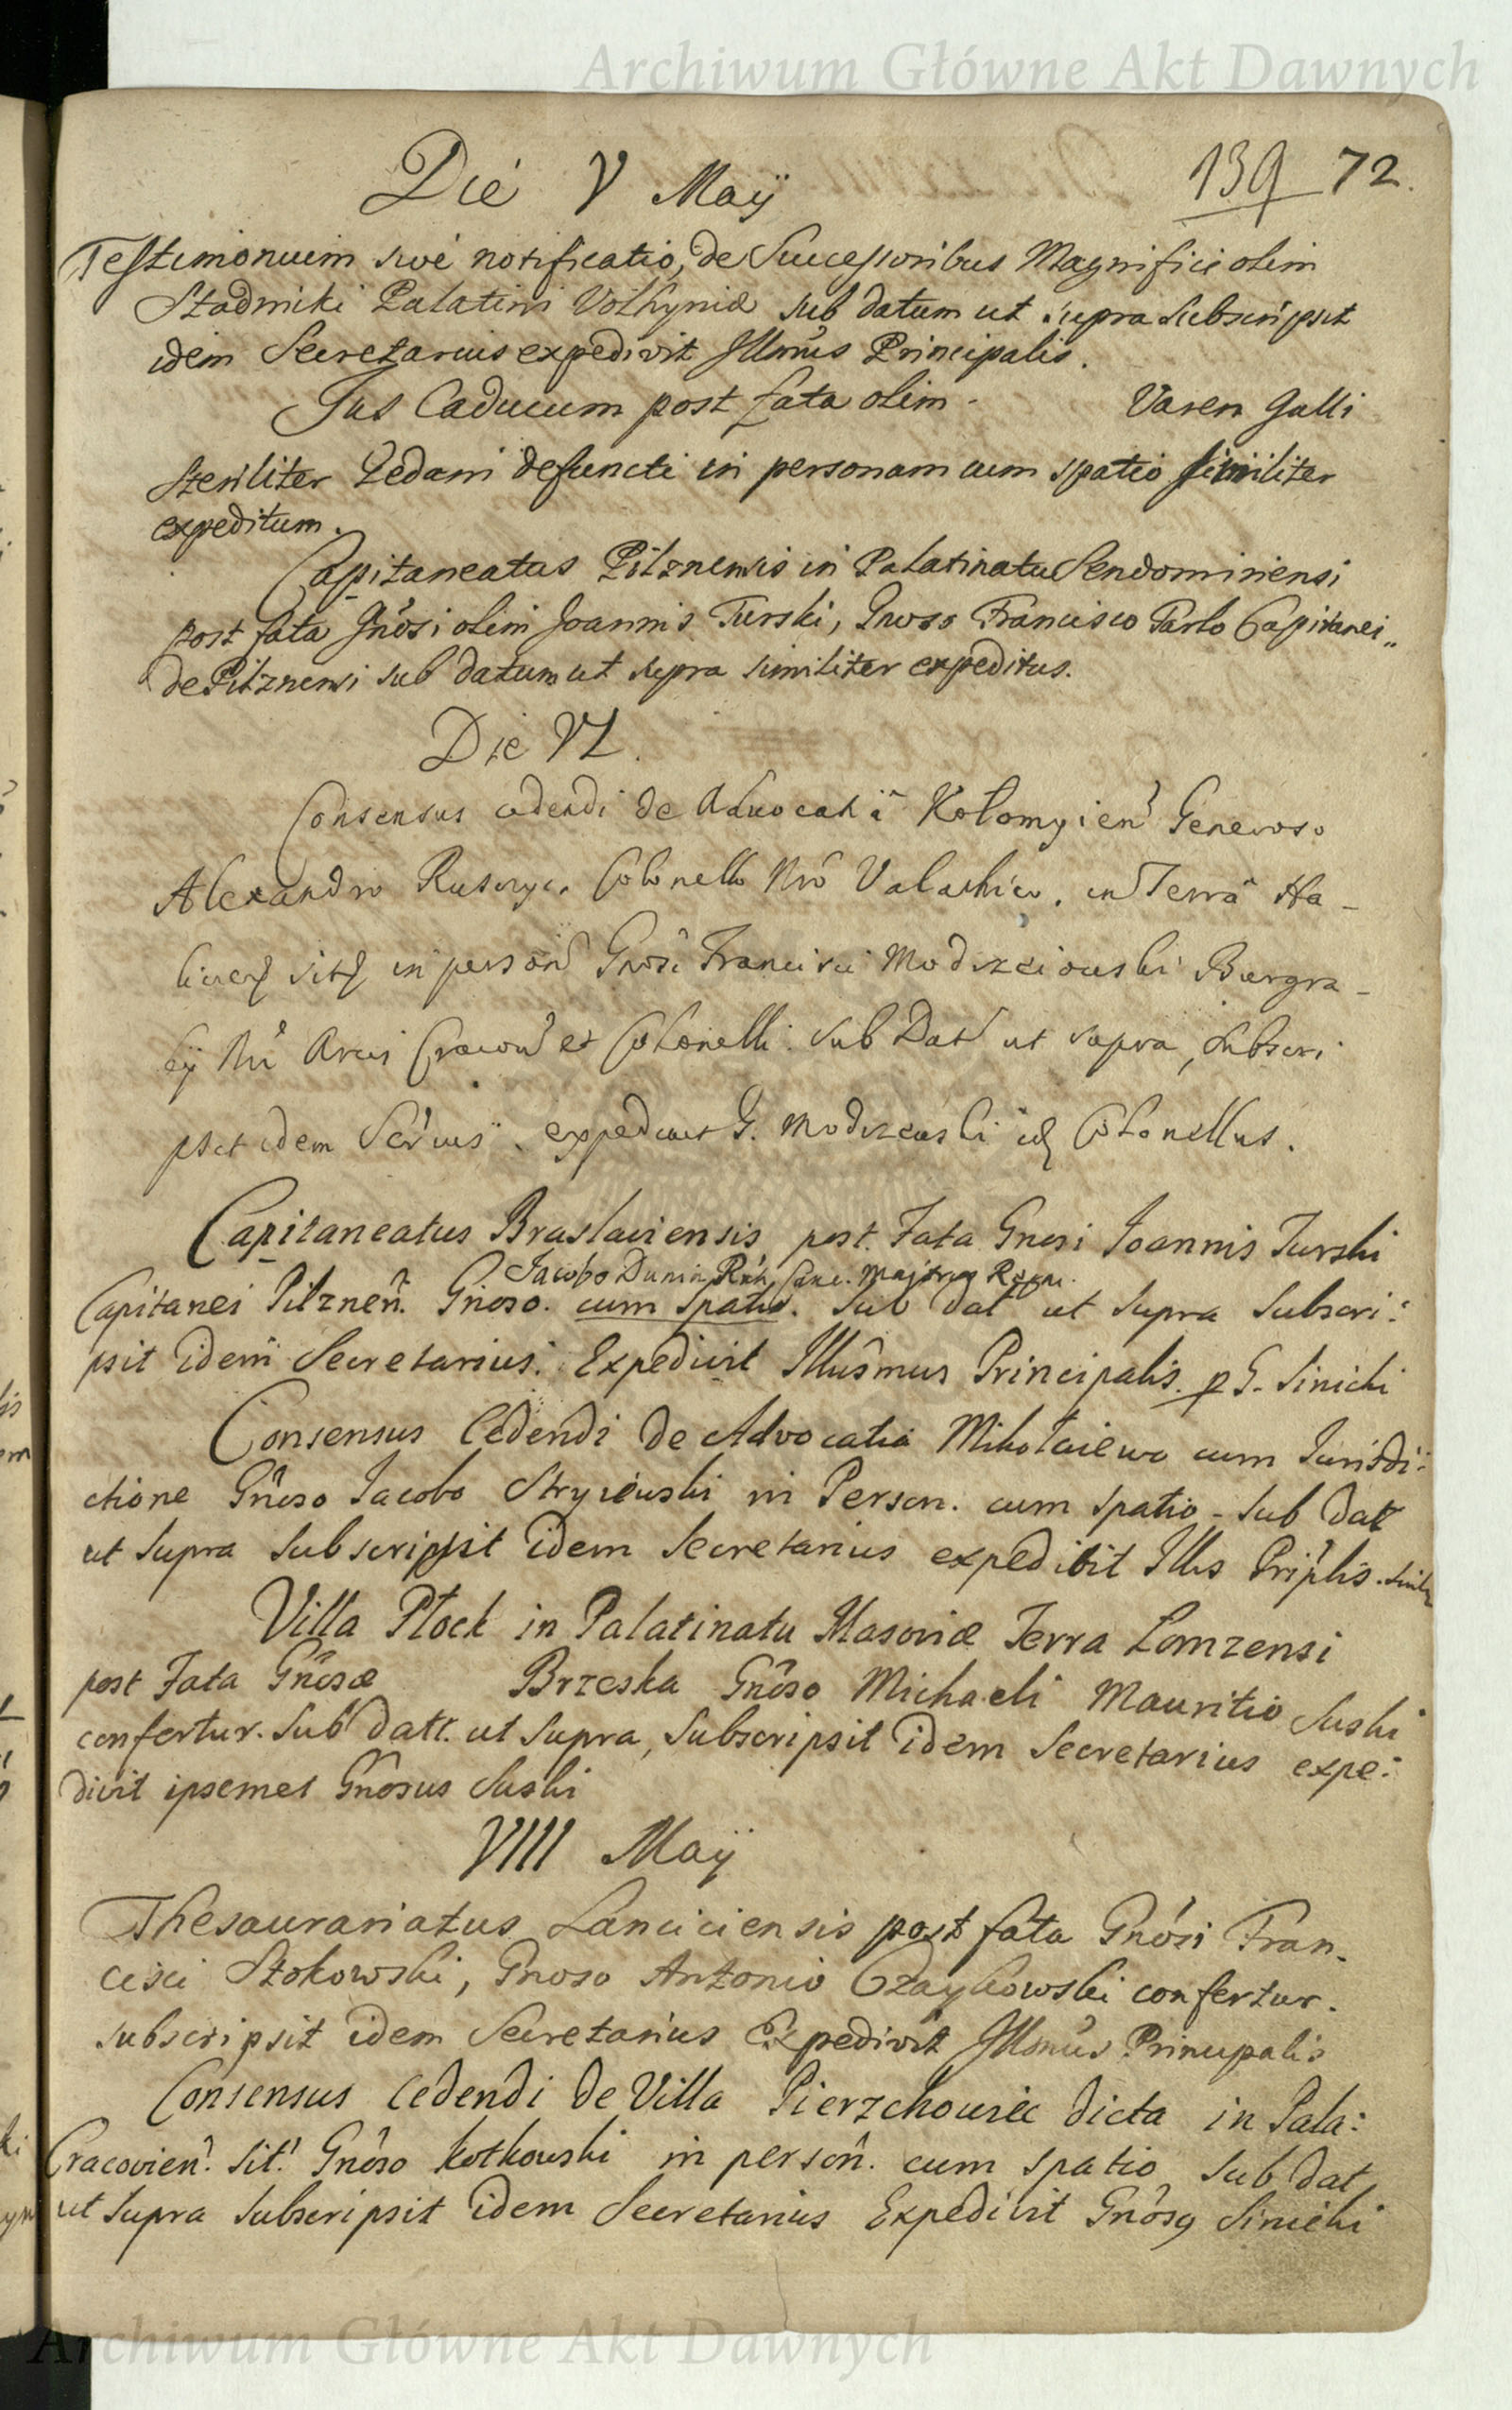 Archiwum Główne Akt Dawnych
139 72.
Die V Maÿ
Testimonium sive notificatio, de Successoribus Magnifici olim
Stadnicki Palatini Volhyniæ sub datum ut supra Subscripsit
idem Secretarius expedivit Illmus Principalis.
Jus Caducum post fata olim - Varen Galli
steriliter Gedani defuncti in personam cum spatio similiter
expeditum.
Capitaneatus Pilznensis in Palatinatu Sendomiriensi
post fata Gnosi olim Joannis Turski, Gnoso Francisco Parlo Capitanei„
de Pilznensi sub datum ut supra similiter expeditus.
Die VI.
Consensus cedendi de Advocatiâ Kołomyien Generoso
Alexandro Colonello Nro Valachico. in Terrâ Ha-
licien sit in person Gnosi Francisci Modrzeiowski Burgra-
bÿ Nri Arcis Cracovi et Colonelli. Sub Dat ut supra, subscri
psit idem Secrius. expedivit G. Modrzewski id Colonellus.
Capitaneatus Braslaviensis post. Fata Gnosi Ioannis Turski
Jacobo Dunin Reg. Canc. Majoris Regni.
Capitanei Pilznen. Gnoso. cum spatio. Sub dat ut Supra Subscri:
psit idem Secretarius. Expedivit Illusmus Principalis. p G. Sinicki
Consensus Cedendi de Advocatia Mikołaiewo cum Iurisdi:
ctione Gnoso Iacobo Stryiewski in Person. cum spatio - Sub dat
ut Supra Subscripsit idem Secretarius expedivit Illis Priplis.
Villa Płock in Palatinatu Masoviæ Terra Lomzensi
post Fata Gnosæ Brzeska Gnoso Michaeli Mauritio Suski
confertur. Sub datt. ut Supra, Subscripsit idem Secretarius expe:
divit ipsemet Gnosus Suski
VIII Maÿ
Thesaurariatus Lanciciensis post fata Gnosi Fran-
cisci Stokowski, Gnoso Antonio Czaykowski confertur.
subscripsit idem Secretarius Expedivit Illmus Principalis
Consensus Cedendi de Villa Pierzchowiec dicta in Pala:
Cracovien. Sit. Gnoso Kotkowski in person. cum spatio Sub dat
ut Supra Subscripsit idem Secretarius Expedivit Gnosg Sinicki
Archiwum Główne Akt Dawnych